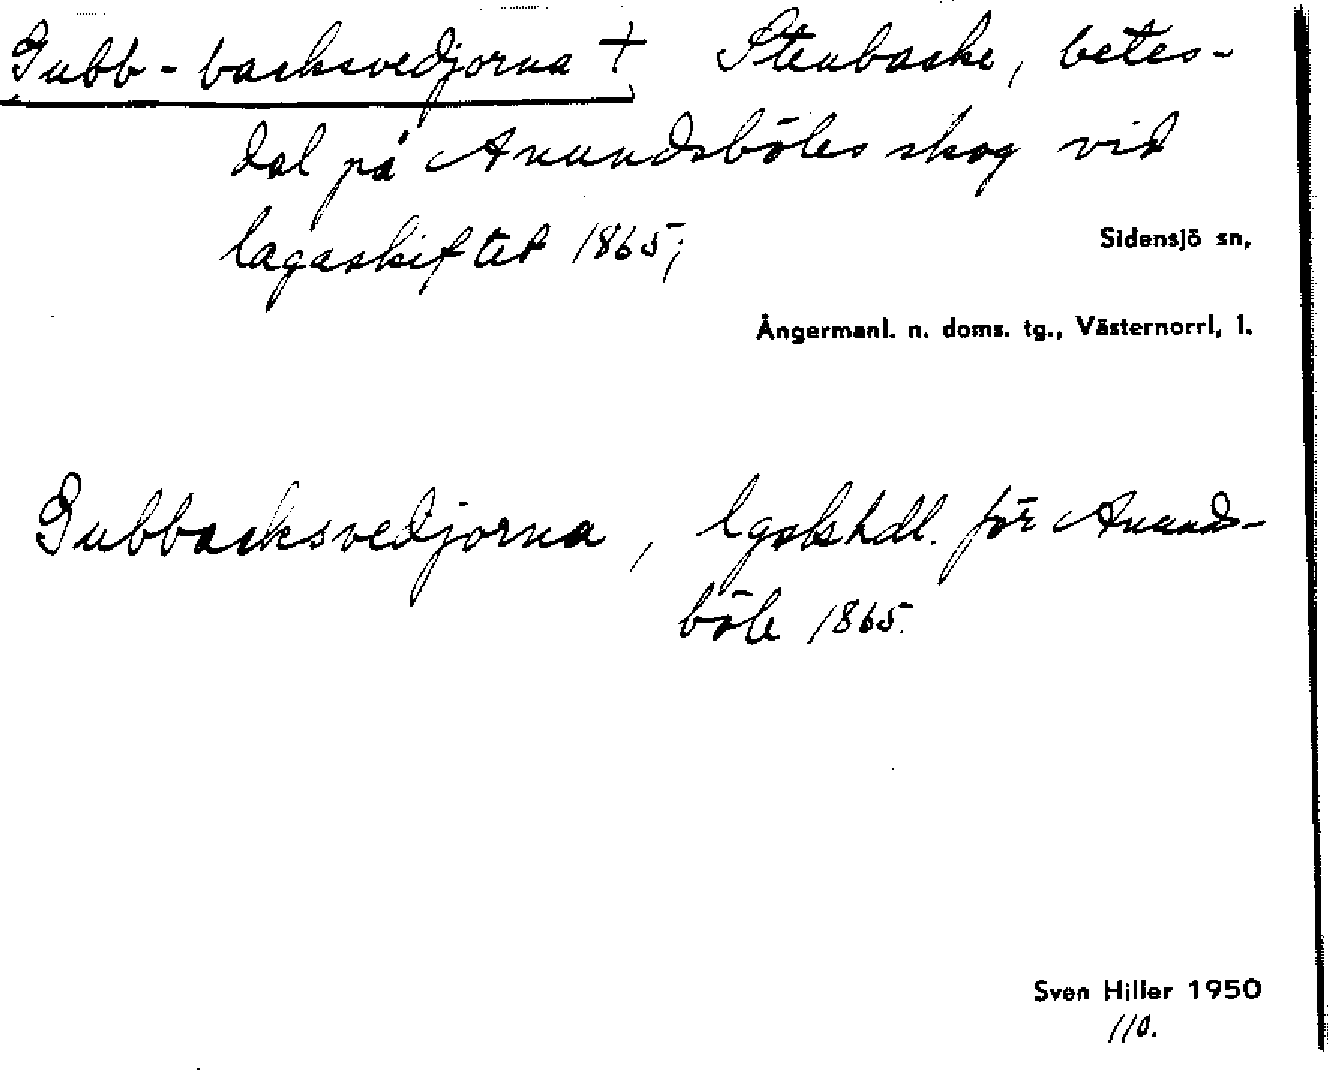 Gubb-backsvedjorna † Stenbacke, betes-
dal på Anundsböles skog vid
lagaskiftet 1865;
Sidensjö sn,
Ångermanl. n. doms. tg., Västernorrl, l.
Gubbacksvedjorna, lgskhdl. för Anunds-
böle 1865.
Sven Hiller 1950
110.